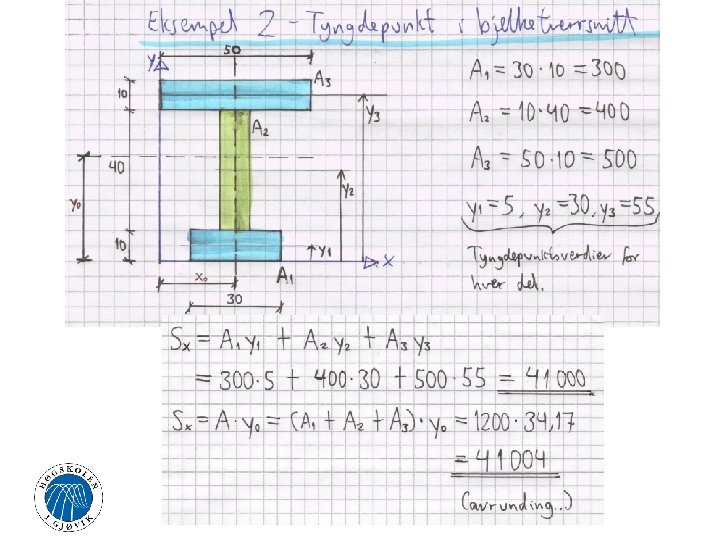 Eksempel 2 – Tyngdepunkt i bjelketverrsnitt
50
y
A3
10
y3
A2
40
y2
y0
10
y1
x
x0
A1
30
A1 = 30·10 = 300
A2 = 10·40 = 400
A3 = 50·10 = 500
y1 = 5, y2 = 30, y3 = 55,
Tyngdepunktsverdier for
hver del.
Sx = A1 y1 + A2 y2 + A3 y3
= 300·5 + 400·30 + 500·55 = 41000
Sx = A·y0 = (A1 + A2 + A3)·y0 = 1200·34,17
= 41004
(avrunding...)
HØGSKOLEN
I GJØVIK